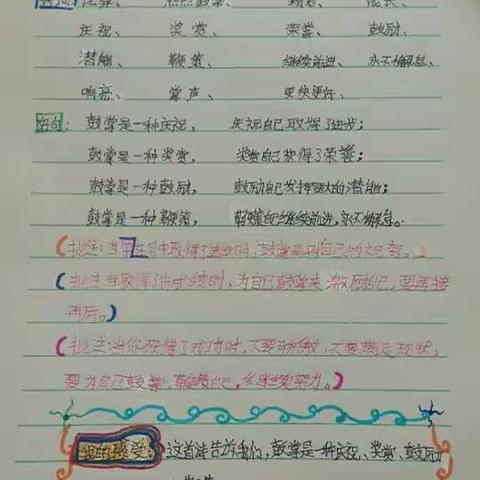 好词: 优异、 热烈鼓掌、 精彩、 成长、
庆祝、 奖赏、 荣誉、 鼓励、
潜能、 鞭策、 继续前进、 永不懈怠、
响亮、 掌声、 更快更好、
好句: 鼓掌是一种庆祝, 庆祝自己取得了进步;
鼓掌是一种奖赏, 奖赏自己获得了荣誉;
鼓掌是一种鼓励, 鼓励自己发挥更大的潜能;
鼓掌是一种鞭策, 鞭策自己继续前进,永不懈怠。
时,鼓掌是对自己的
(批注:当取得了 成绩时,为自己鼓掌来激励自己,要再接
再厉。)
(批注:当你获得了成功时,不要骄傲,不要满足现状,
要为自己鼓掌,鞭策自己,继续努力。)
我的感受:这首诗告诉我们,鼓掌是一种庆祝、奖赏、鼓励